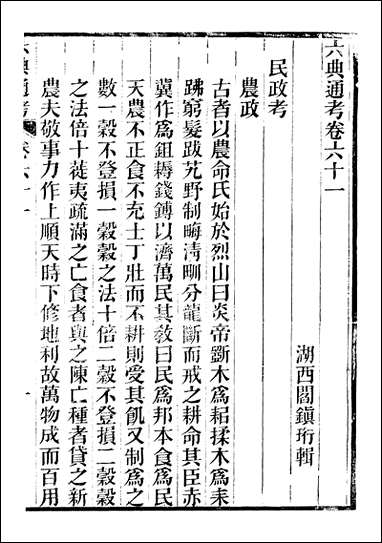 六典通考卷六十一
湖西閻鎮珩輯
民政考
農政
古者以農命氏始於烈山曰炎帝斷木為耜揉木為耒
跣窮髮跋芃野制畮清甽分龍斷而戒之耕命其臣赤
冀作為鉏耨錢鎛以濟萬民其敎曰民為邦本食為民
天農不正食不充士丁壯而不耕則受其飢又制為之
數一穀不登損一穀穀之法十倍二穀不登損二穀穀
之法倍十蓰夷疏滿之亡食者與之陳亡種者貸之新
農夫敬事力作上順天時下修地利故萬物成而百用
六典通考
卷六十一
一